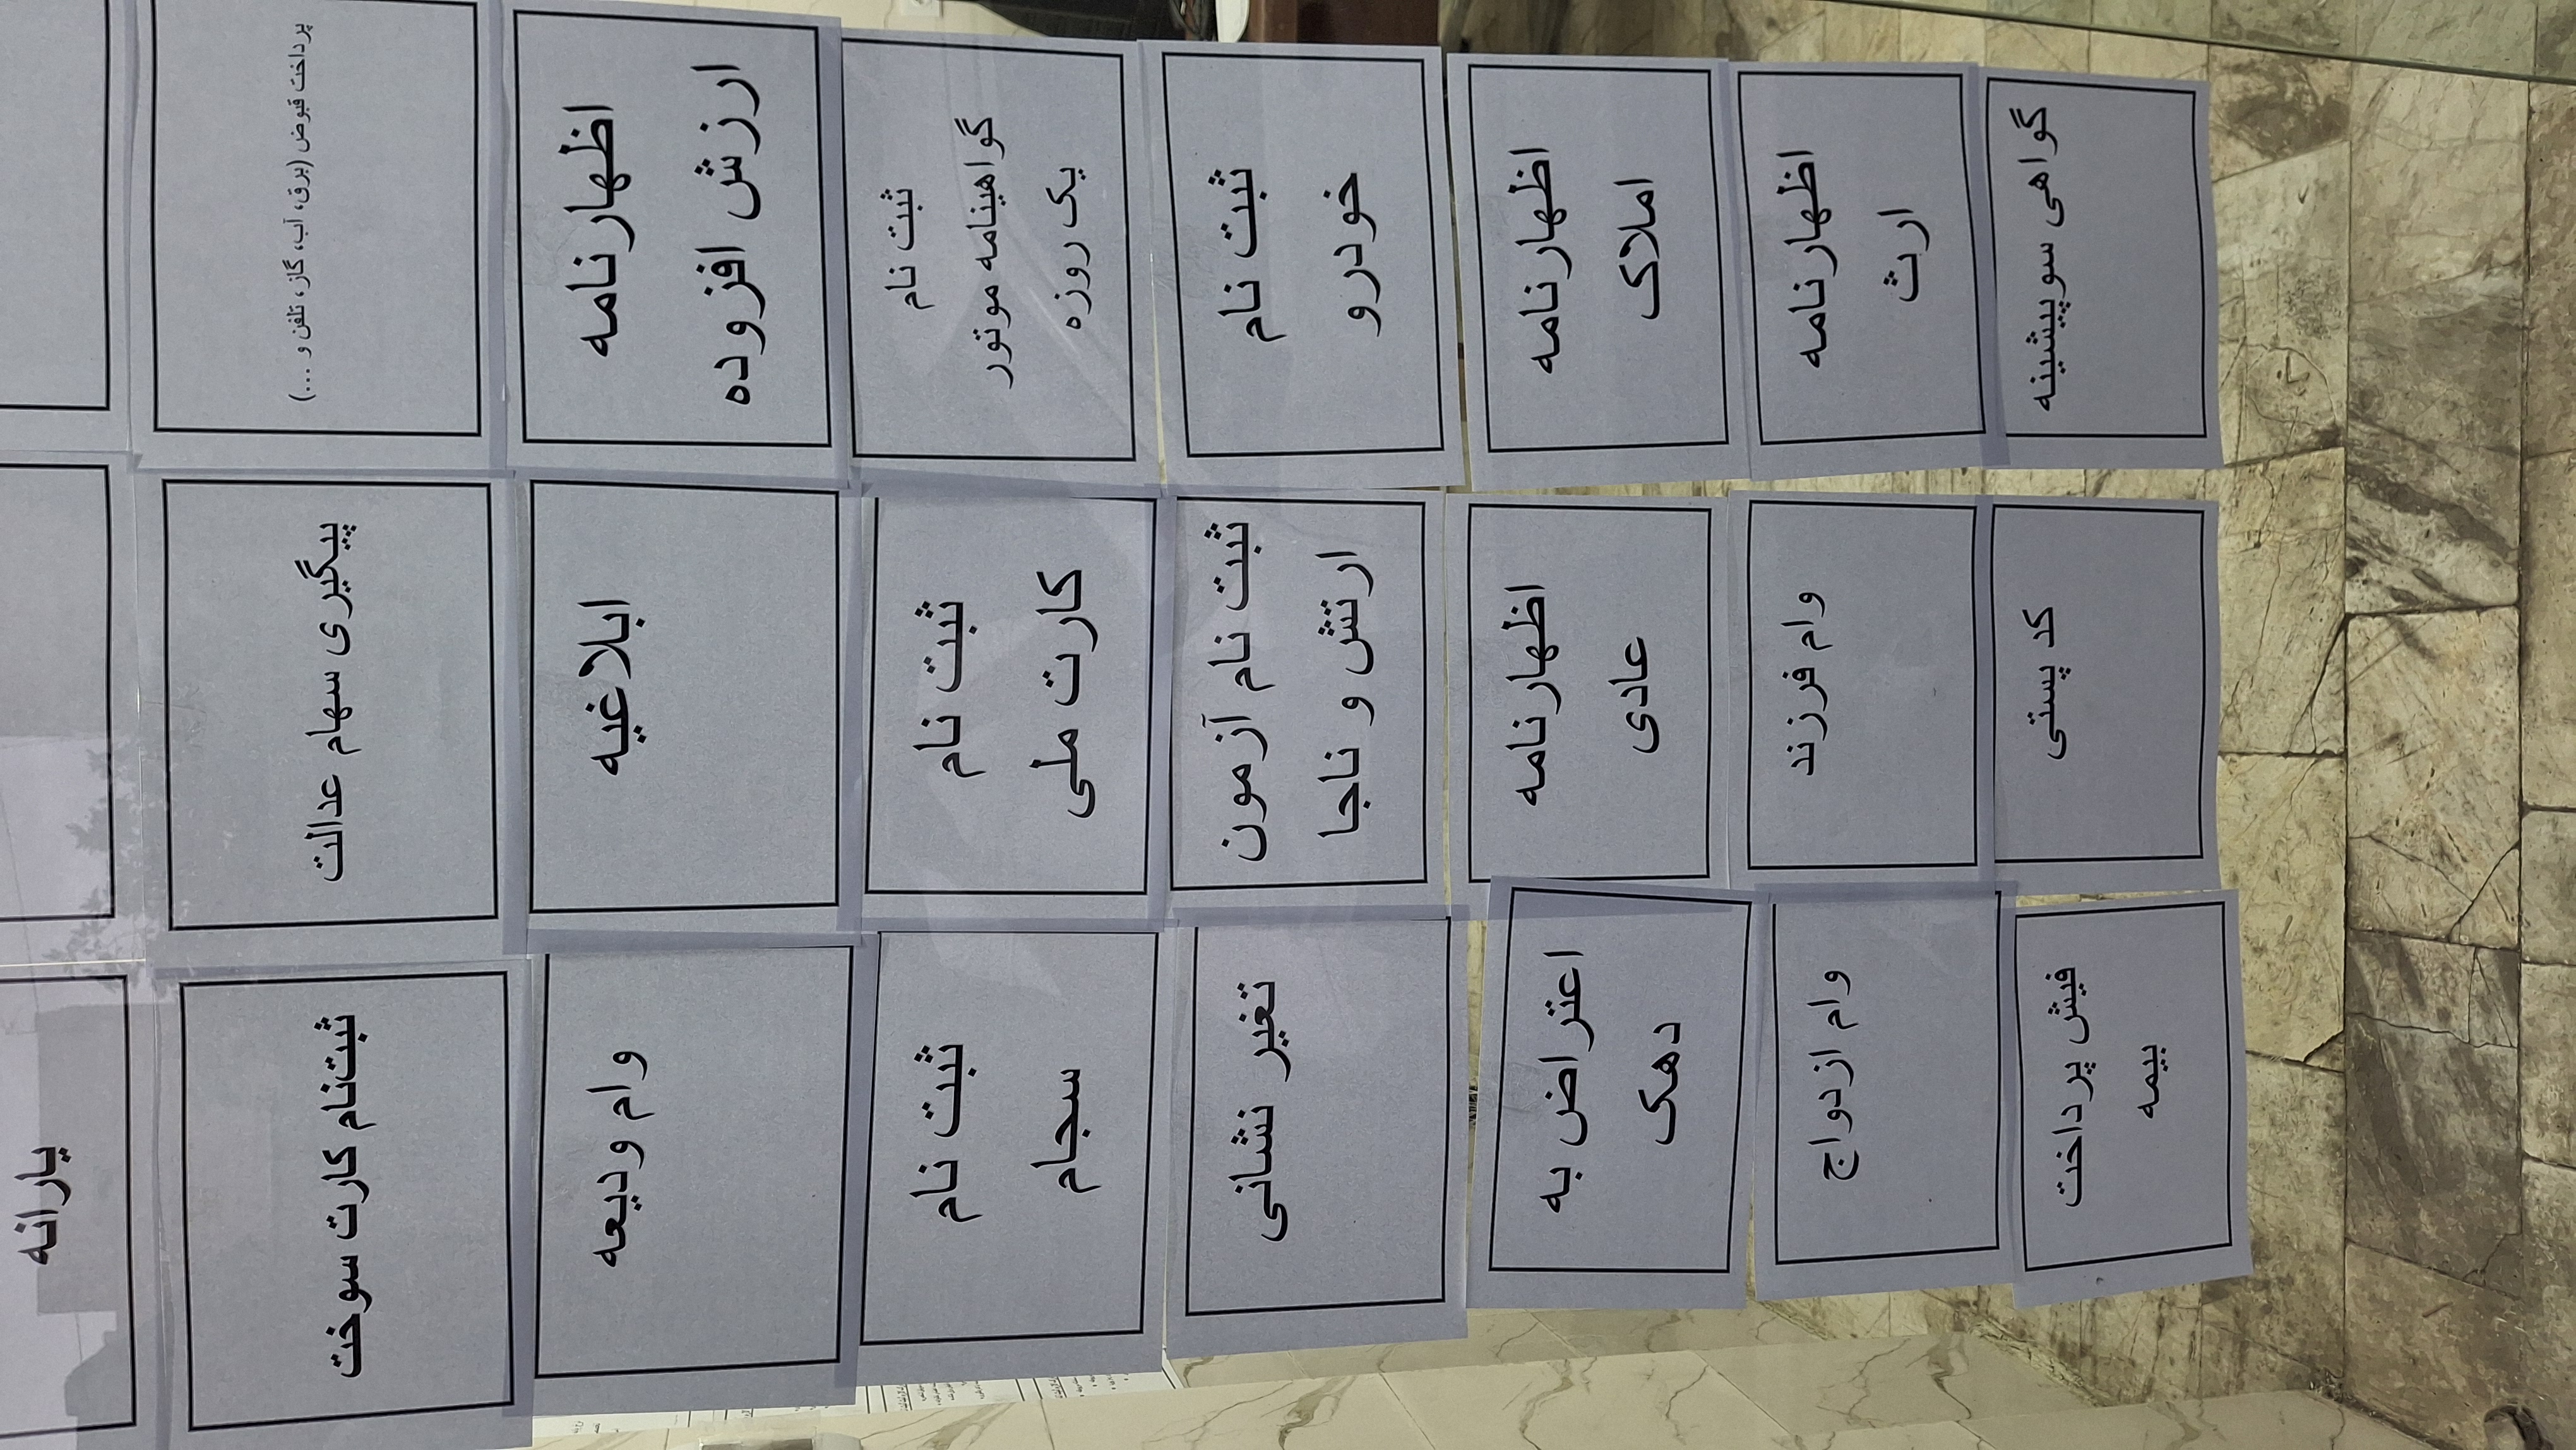 یارانه
پرداخت قبوض (برق، آب، گاز، تلفن و ...)
پیگیری سهام عدالت
ثبت‌نام کارت سوخت
اظهارنامه
ارزش افزوده
ابلاغیه
وام ودیعه
ثبت نام
گواهینامه موتور
یک روزه
ثبت نام
کارت ملی
ثبت نام
سجام
ثبت نام
خودرو
ثبت نام آزمون
ارتش و ناجا
تغیر نشانی
اظهارنامه
املاک
اظهارنامه
عادی
اعتراض به
دهک
اظهارنامه
ارث
وام فرزند
وام ازدواج
گواهی سوپیشینه
کد پستی
فیش پرداخت
بیمه